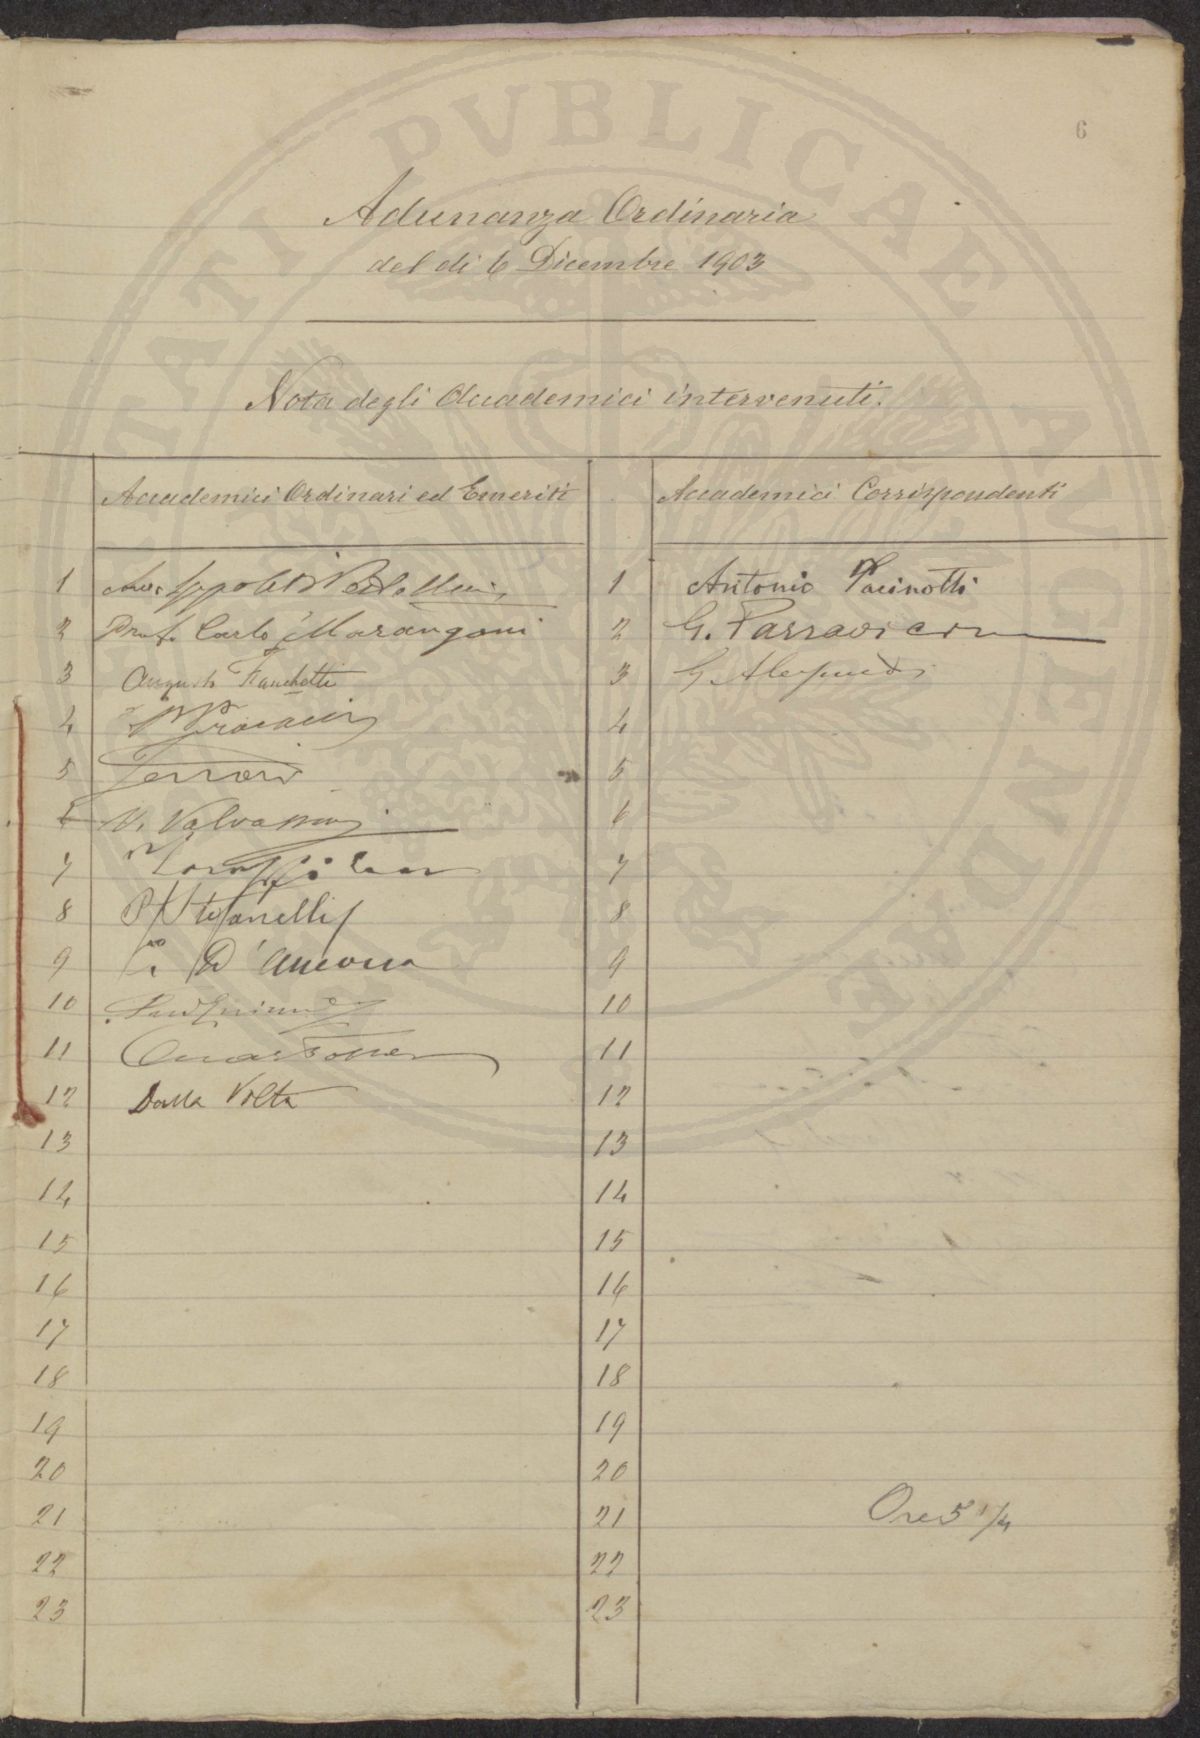 6
Adunanza Ordinaria
del dì 6 Dicembre 1903
Nota degli Accademici intervenuti.
Accademici Ordinari ed Emeriti
Accademici Corrispondenti
1 Avv.
1 Antonio Pacinotti
2 Prof. Carlo Marangoni
2 G. Parravicini
3 Augusto Franchetti
3 G.
4
4
5 Ferrari
5
6 V. Valvassori
6
7
7
8 P. Stefanelli
8
9 C. D'Ancona
9
10
10
11
11
12 Dalla Volta
12
13
13
14
14
15
15
16
16
17
17
18
18
19
19
20
20
21
21 Ore 5 1/4
22
22
23
23
PUBLICAE